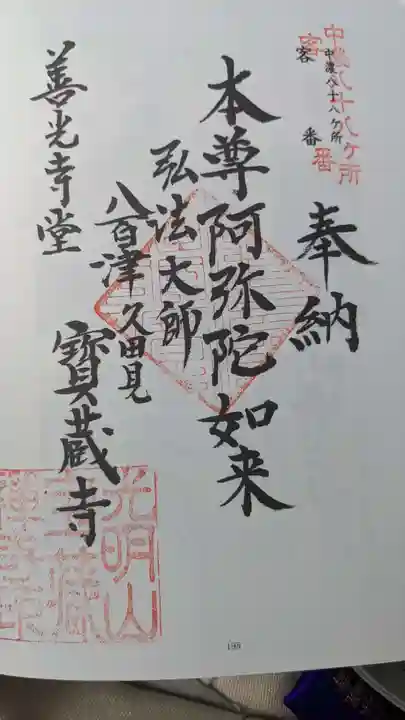 中濃八十八ケ所
客番
奉納
本尊阿弥陀如来
弘法大師
八百津久田見
寳蔵寺
善光寺堂
光明山